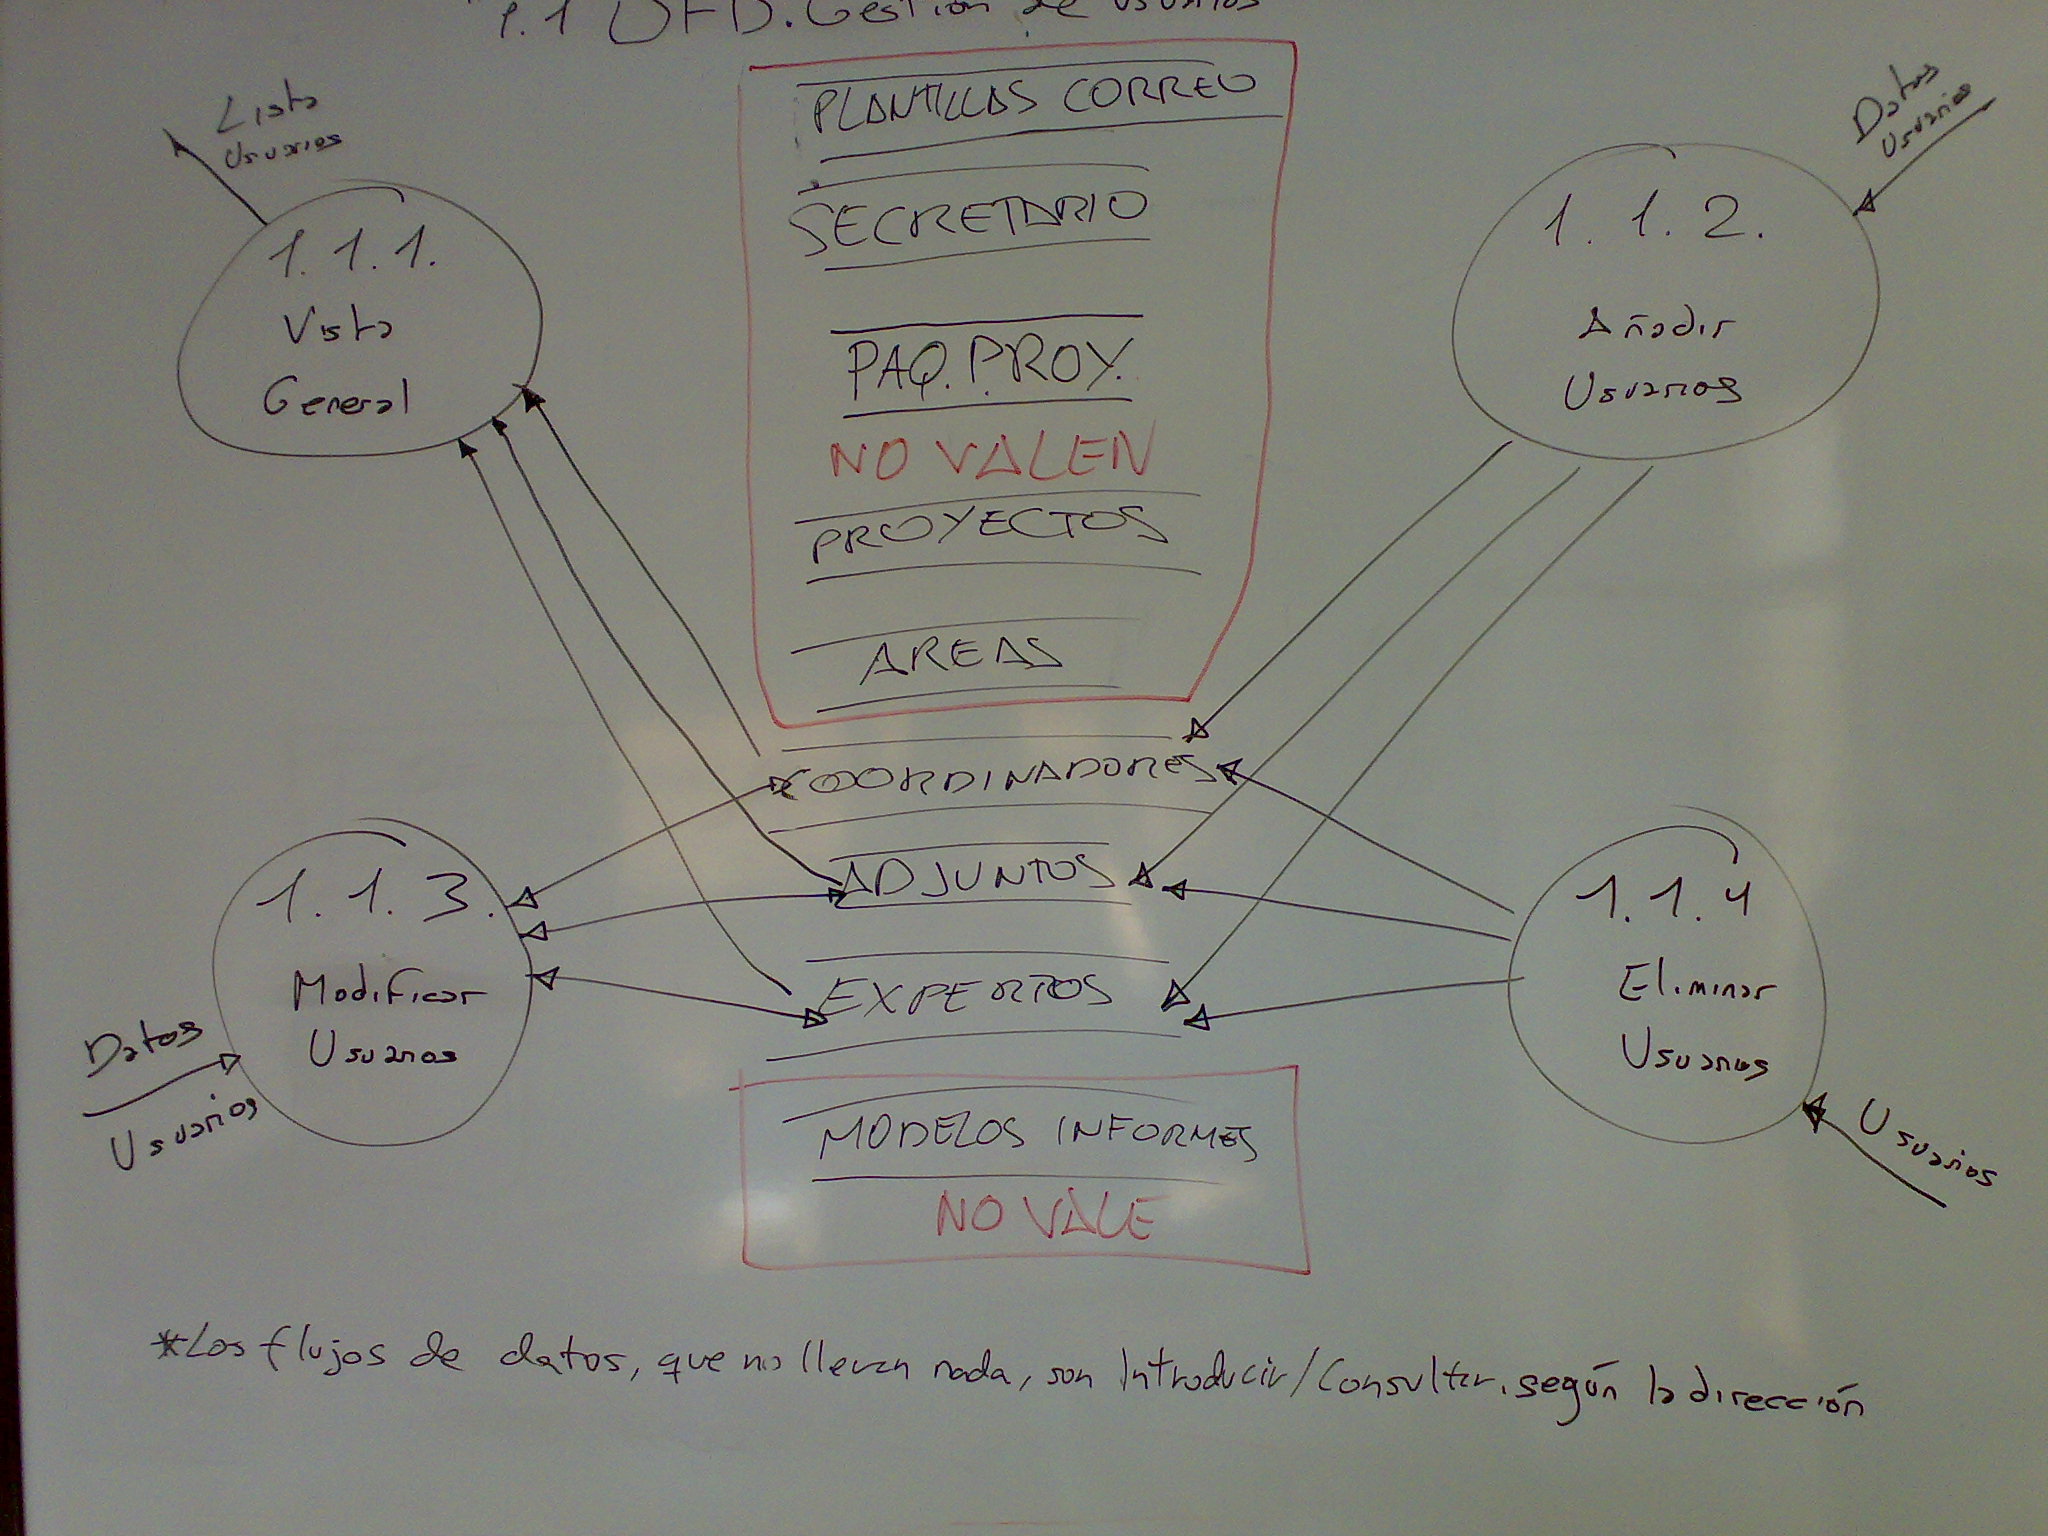 1.1 DFD. Gestión de usuarios
Lista
Usuarios
1.1.1.
Vista
General
PLANTILLAS CORREO
SECRETARIO
PAQ. PROY.
NO VALEN
PROYECTOS
AREAS
Datos
Usuarios
1.1.2.
Añadir
Usuarios
COORDINADORES
ADJUNTOS
EXPERTOS
1.1.3.
Modificar
Usuarios
Datos
Usuarios
1.1.4
Eliminar
Usuarios
Usuarios
MODELOS INFORMES
NO VALE
*Los flujos de datos, que no llevan nada, son Introducir/Consultar, según la dirección